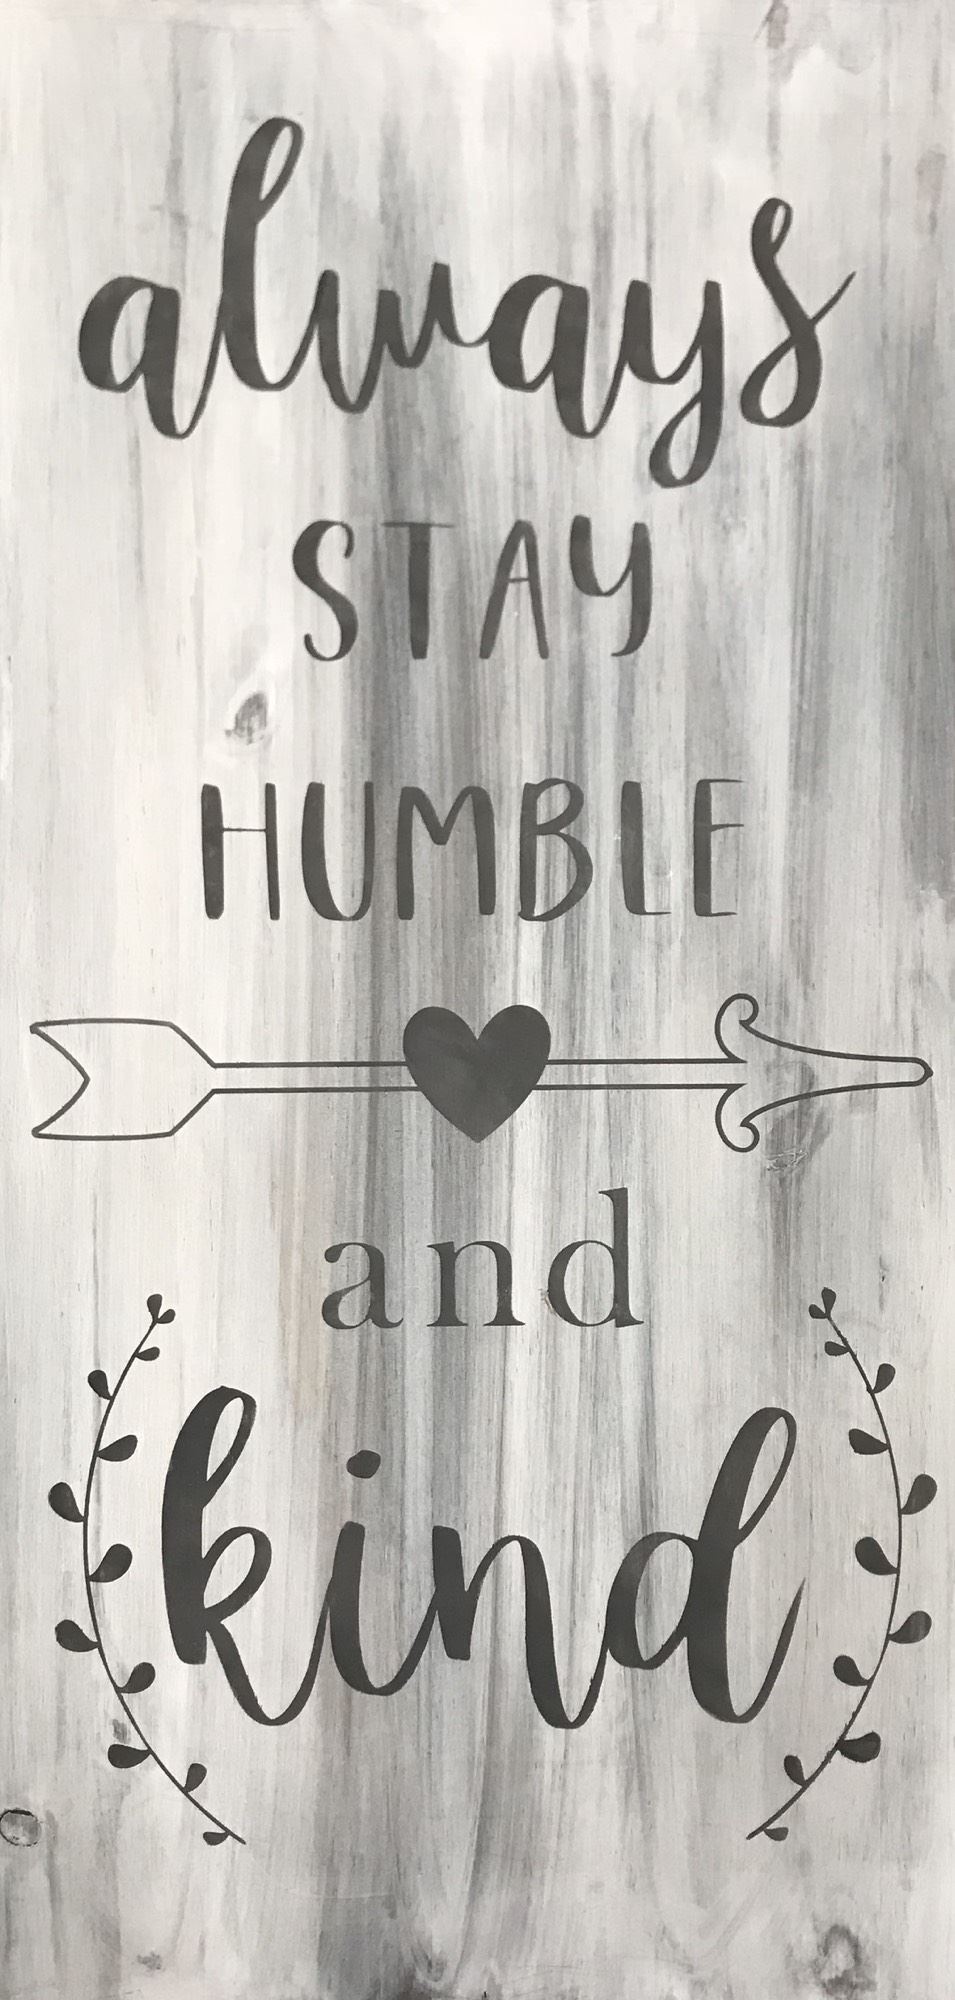 always
STAY
HUMBLE
and
kind